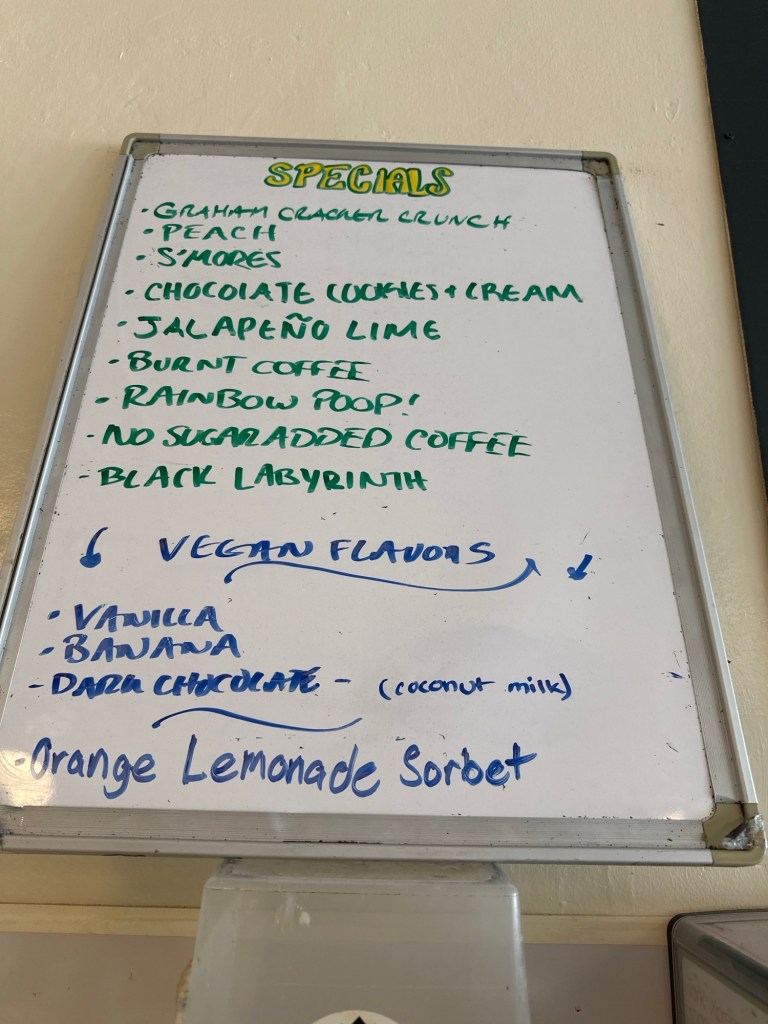 SPECIALS
· GRAHAM CRACKER CRUNCH
· PEACH
· S'MORES
· CHOCOLATE COOKIES + CREAM
· JALAPEÑO LIME
· BURNT COFFEE
· RAINBOW POOP!
· NO SUGAR ADDED COFFEE
- BLACK LABYRINTH
↓ VEGAN FLAVORS ↓
· VANILLA
· BANANA
- DARK CHOCOLATE - (coconut milk)
· Orange Lemonade Sorbet